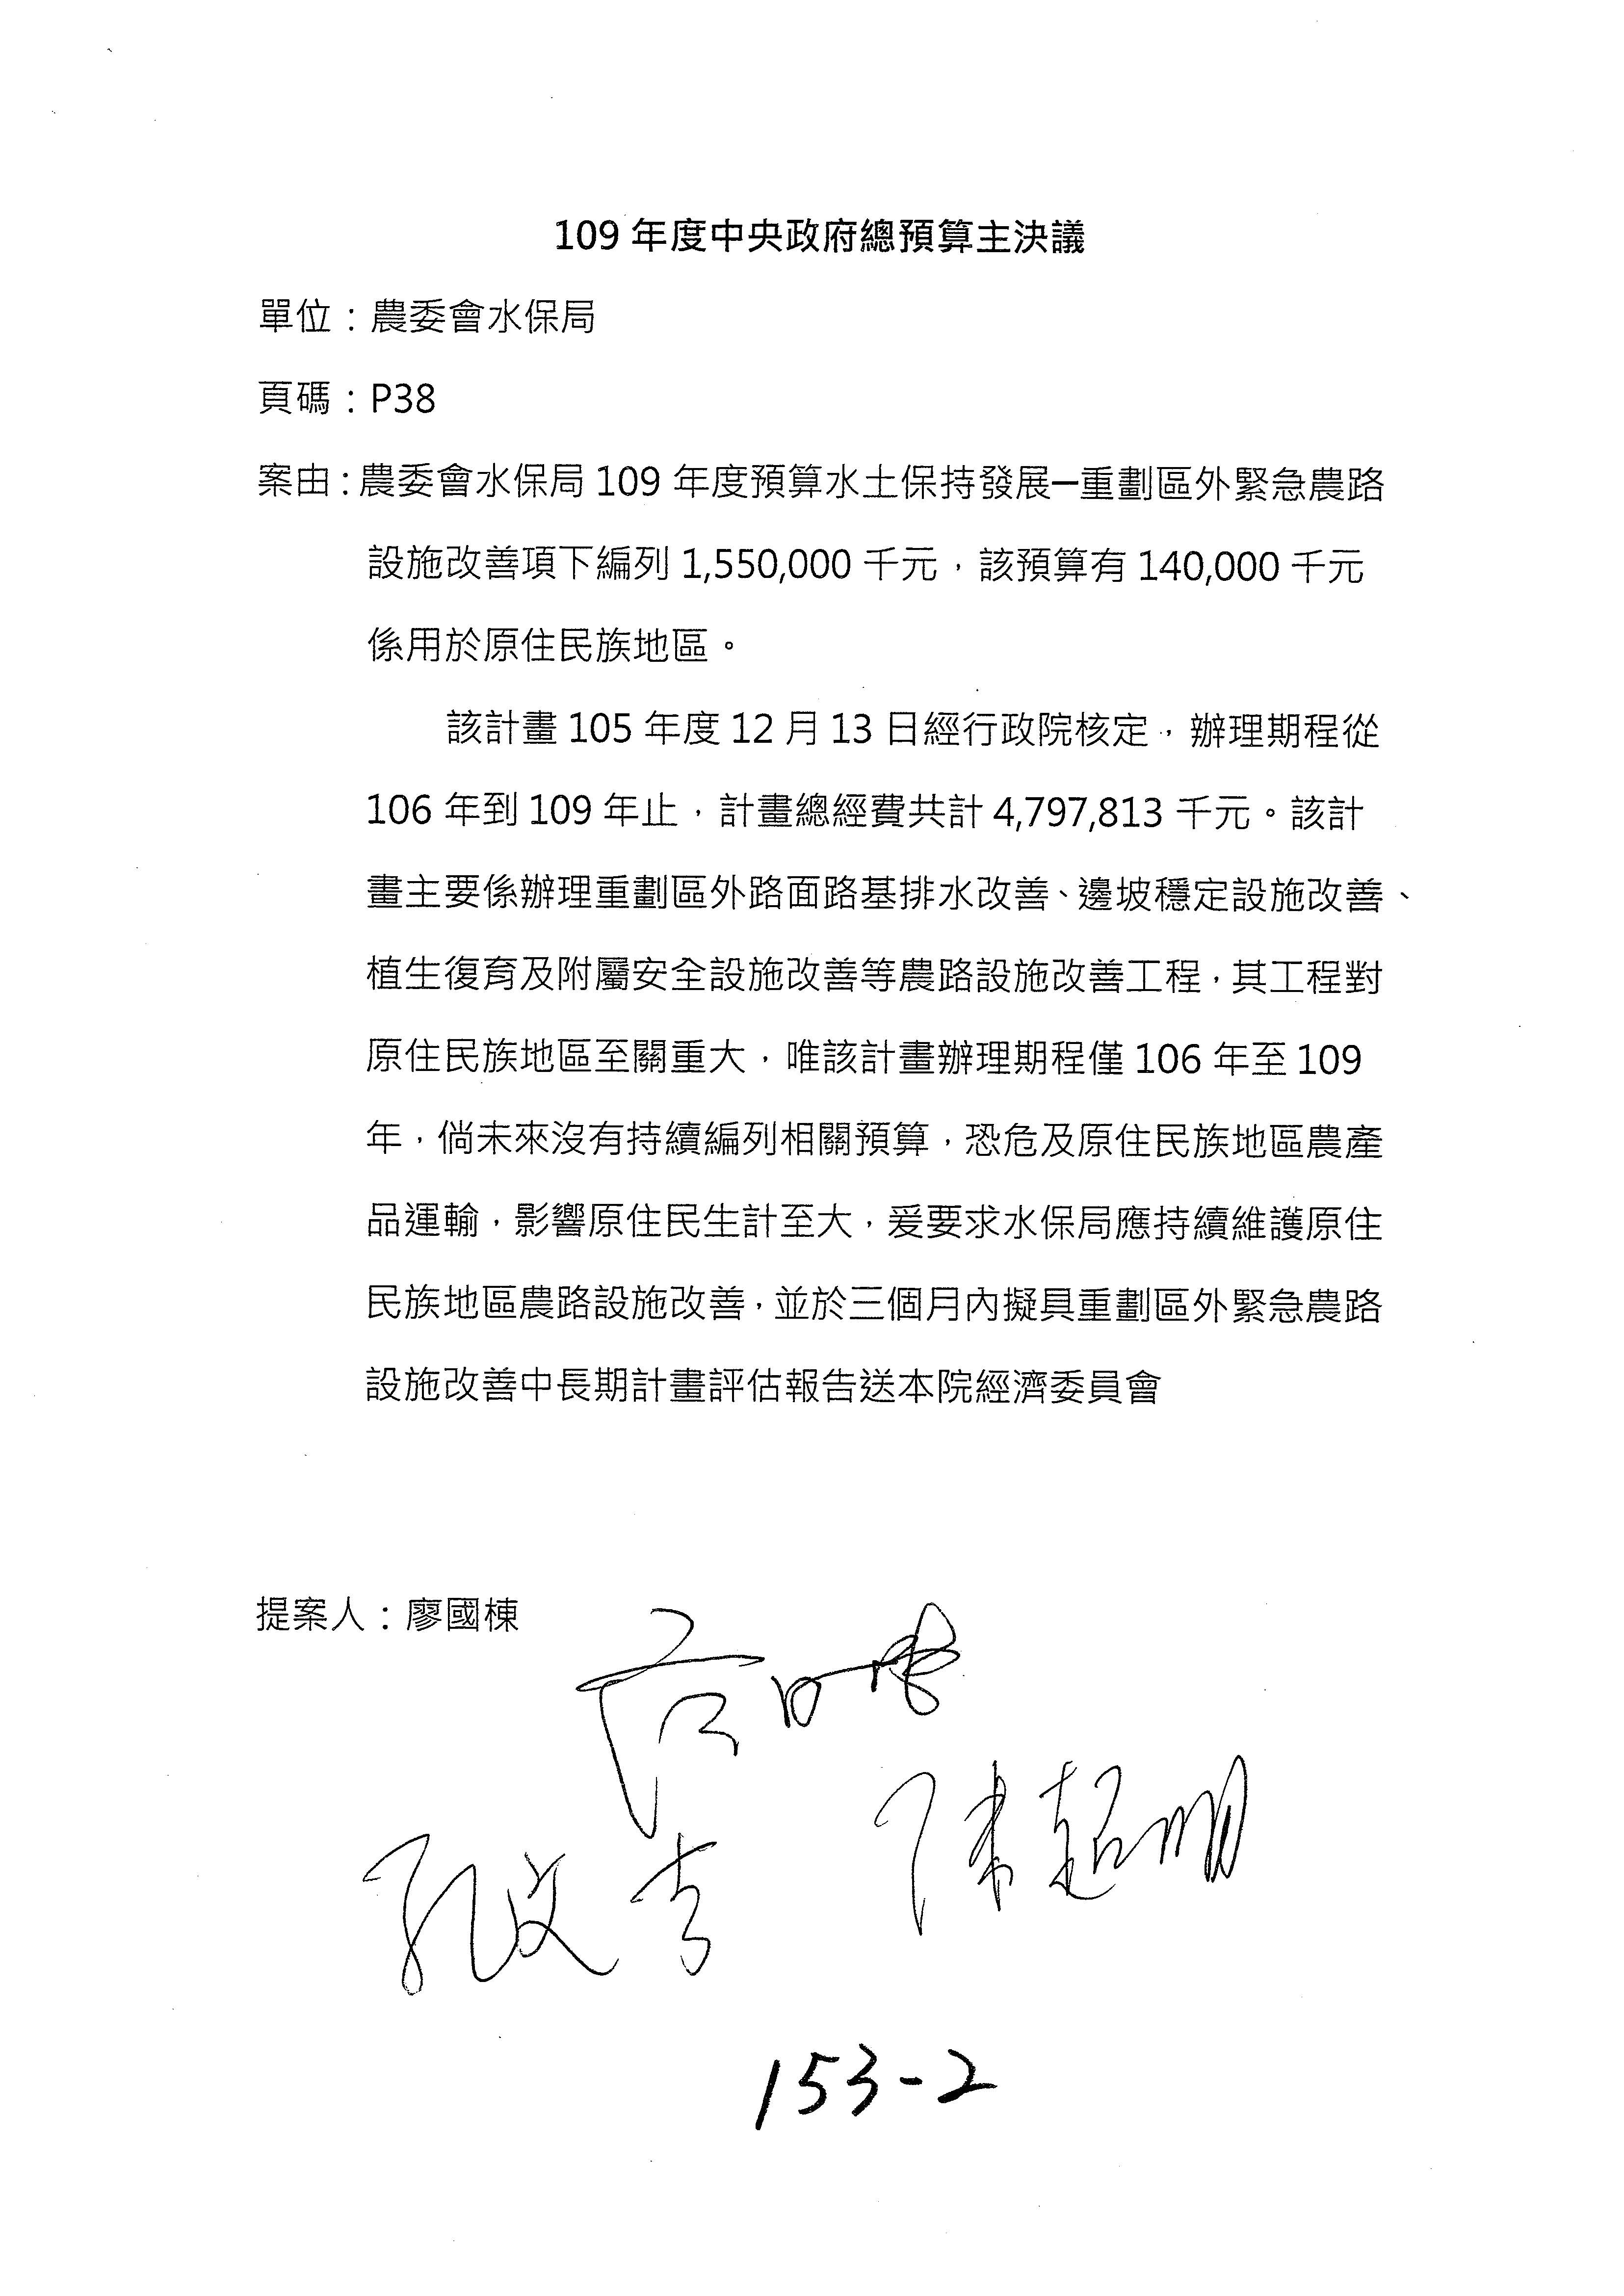 109 年度中央政府總預算主決議
單位：農委會水保局
頁碼：P38
案由：農委會水保局 109 年度預算水土保持發展—重劃區外緊急農路
設施改善項下編列 1,550,000 千元，該預算有 140,000 千元
係用於原住民族地區。
該計畫 105 年度 12 月 13 日經行政院核定，辦理期程從
106 年到 109 年止，計畫總經費共計 4,797,813 千元。該計
畫主要係辦理重劃區外路面路基排水改善、邊坡穩定設施改善、
植生復育及附屬安全設施改善等農路設施改善工程，其工程對
原住民族地區至關重大，唯該計畫辦理期程僅 106 年至 109
年，倘未來沒有持續編列相關預算，恐危及原住民族地區農產
品運輸，影響原住民生計至大，爰要求水保局應持續維護原住
民族地區農路設施改善，並於三個月內擬具重劃區外緊急農路
設施改善中長期計畫評估報告送本院經濟委員會
提案人：廖國棟
陳超明
孔文吉
153-2